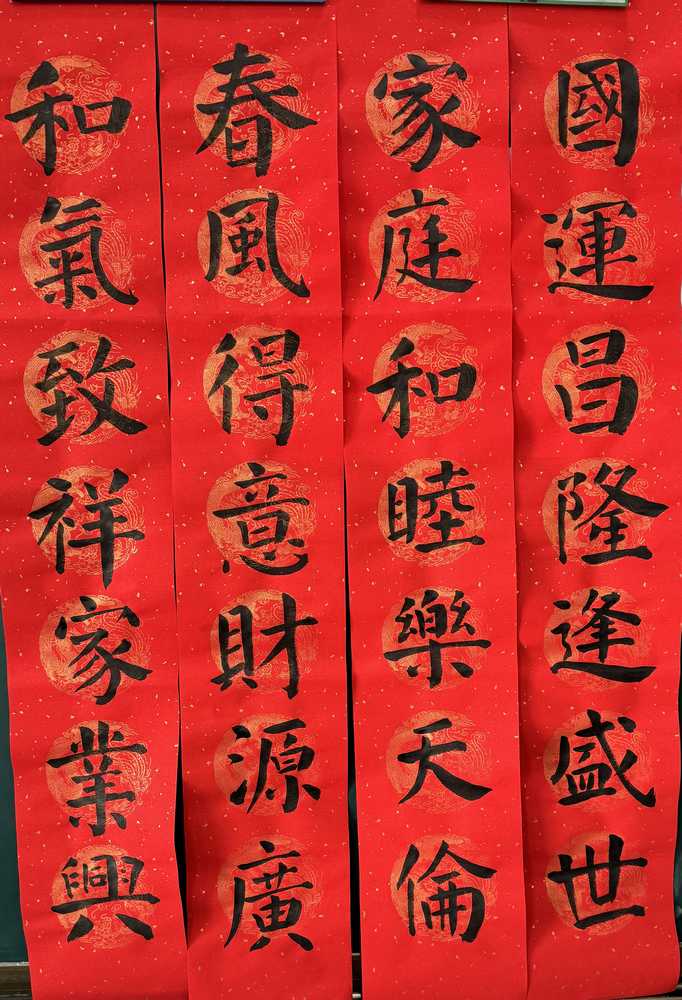 國運昌隆逢盛世
家庭和睦樂天倫
春風得意財源廣
和氣致祥家業興